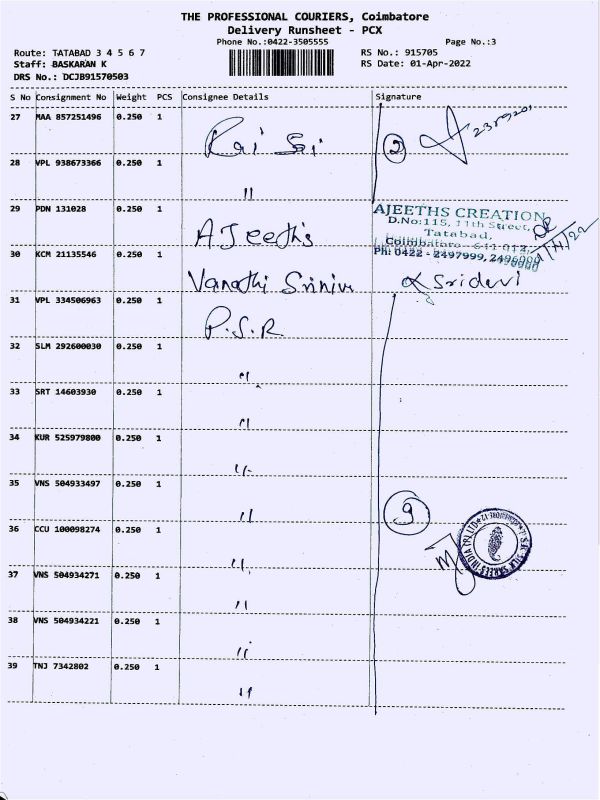 THE PROFESSIONAL COURIERS, Coimbatore
Delivery Runsheet - PCX
Phone No.:0422-3505555 Page No.:3
Route: TATABAD 3 4 5 6 7 RS No.: 915705
Staff: BASKARAN K RS Date: 01-Apr-2022
DRS No.: DCJB91570503
S No Consignment No Weight PCS Consignee Details Signature
27 MAA 857251496 0.250 1 Sri 2
28 VPL 938673366 0.250 1 "
29 PDN 131028 0.250 1 AJeeths
AJEETHS CREATION
D.No:115, 11th Street,
Tatabad,
Coimbatore - 641 012,
Ph: 0422 - 2497999, 2496000
1/4/22
30 KCM 21135546 0.250 1 Vanathi Sriniv Sridevi
31 VPL 334506963 0.250 1 P.S.R
32 SLM 292600030 0.250 1 "
33 SRT 14603930 0.250 1 "
34 KUR 525979800 0.250 1 "
35 VNS 504933497 0.250 1 " 9
36 CCU 100098274 0.250 1 "
P.S.R. SILK SAREES INDIA (P) LTD
37 VNS 504934271 0.250 1 "
38 VNS 504934221 0.250 1 "
39 TNJ 7342802 0.250 1 "